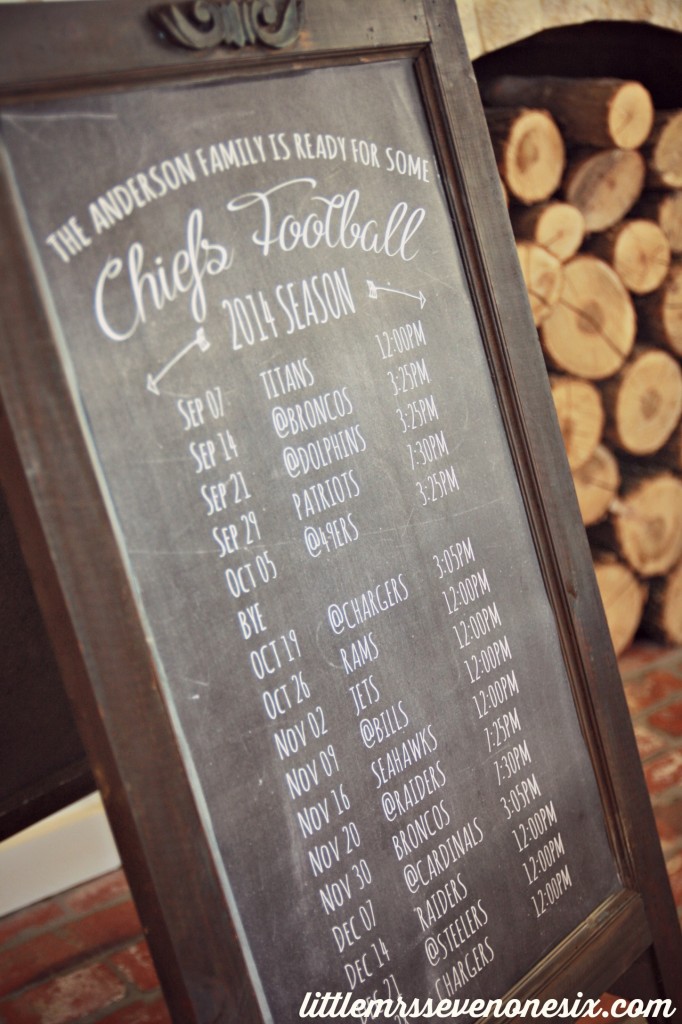 THE ANDERSON FAMILY IS READY FOR SOME
Chiefs Football
2014 SEASON
SEP 07 TITANS 12:00PM
SEP 14 @BRONCOS 3:25PM
SEP 21 @DOLPHINS 3:25PM
SEP 29 PATRIOTS 7:30PM
OCT 05 @49ERS 3:25PM
BYE
OCT 19 @CHARGERS 3:05PM
OCT 26 RAMS 12:00PM
NOV 02 JETS 12:00PM
NOV 09 @BILLS 12:00PM
NOV 16 SEAHAWKS 12:00PM
NOV 20 @RAIDERS 7:25PM
NOV 30 BRONCOS 7:30PM
DEC 07 @CARDINALS 3:05PM
DEC 14 RAIDERS 12:00PM
DEC 21 @STEELERS 12:00PM
CHARGERS 12:00PM
littlemrssevenonesix.com